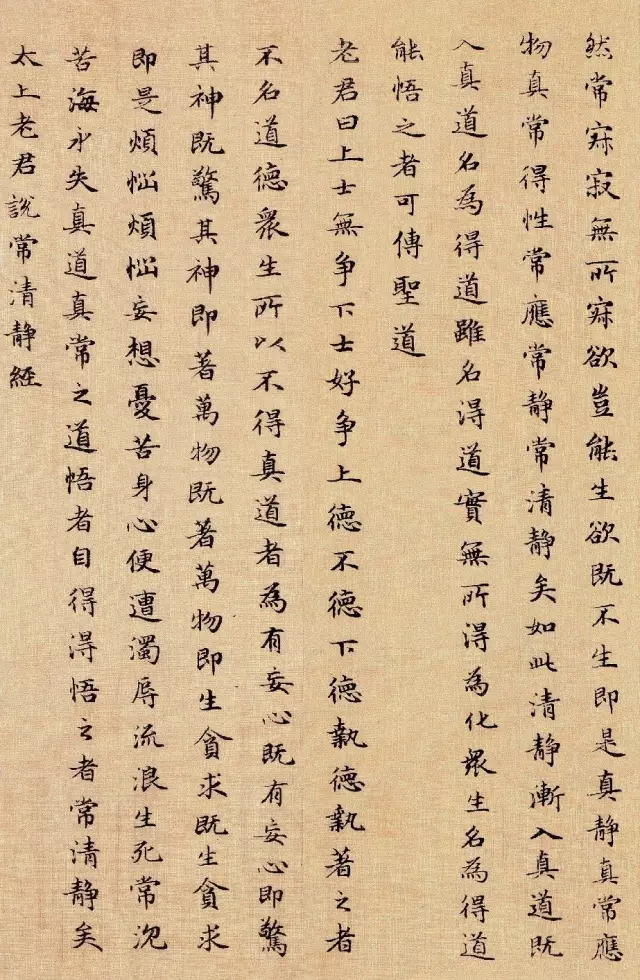 然常寂寂無所寂欲豈能生欲既不生即是真静真常應
物真常得性常應常静常清静矣如此清静漸入真道既
入真道名為得道雖名得道實無所得為化眾生名為得道
能悟之者可傳聖道
老君曰上士無争下士好争上德不德下德執德執著之者
不名道德衆生所以不得真道者為有妄心既有妄心即驚
其神既驚其神即著萬物既著萬物即生貪求既生貪求
即是煩惱煩惱妄想憂苦身心便遭濁辱流浪生死常沉
苦海永失真道真常之道悟者自得得悟之者常清静矣
太上老君說常清静經